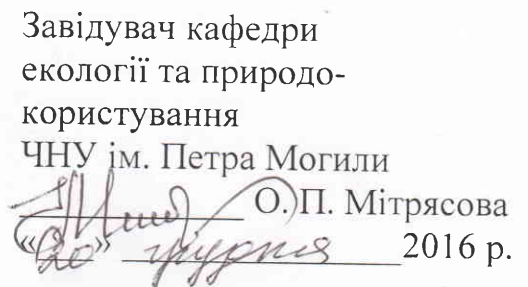 Завідувач кафедри
екології та природо-
користування
ЧНУ ім. Петра Могили
О. П. Мітрясова
«20» грудня 2016 р.